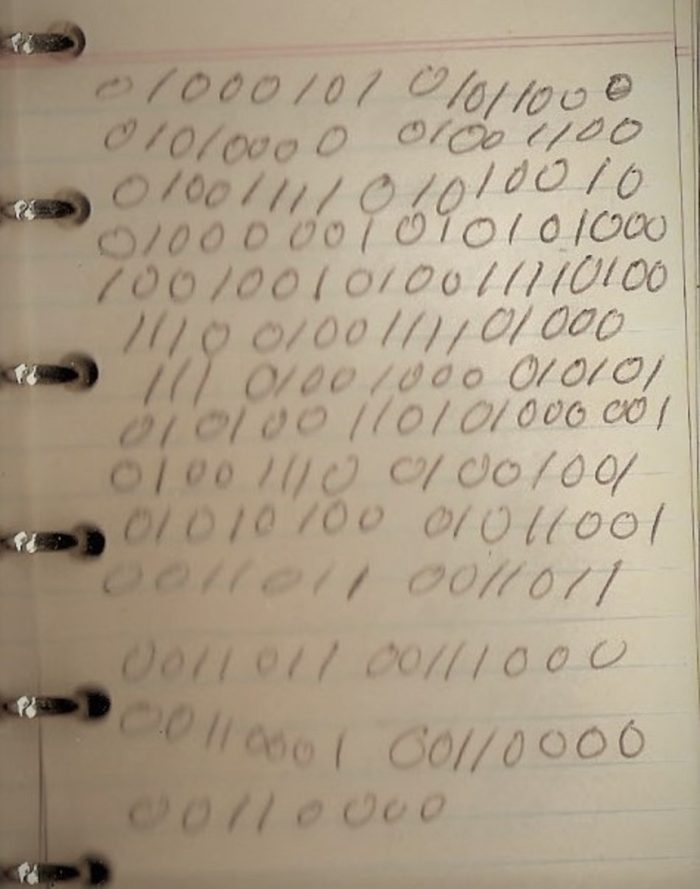 01000101 01011000
01010000 01001100
01001111 01010010
01000001 010101000
1001001 01001111 0100
1110 01001111 01000
111 01001000 010101
010100110101000001
01001110 01001001
01010100 01011001
0011011 0011011
0011011 00111000
00110001 00110000
00110000